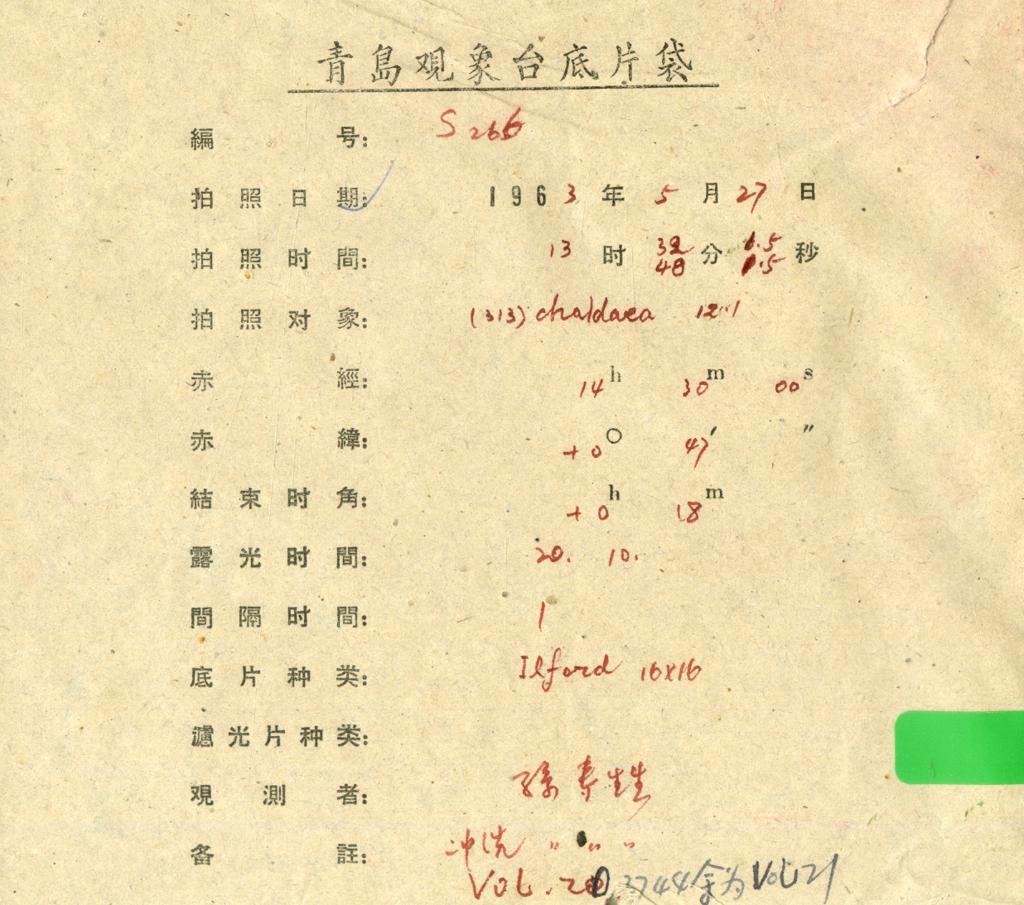 青島观象台底片袋
編号: S 266
拍照日期: 1963年5月27日
拍照时間: 13时 32 48 分 1.5 1.5 秒
拍照对象: (313) chaldaea 12.1
赤經: 14h 30m 00s
赤緯: +0° 47′ ″
結束时角: +0h 18m
露光时間: 20. 10.
間隔时間: 1
底片种类: Ilford 16x16
濾光片种类:
观測者: 孫寿
备註: 冲洗 〃 〃 〃
VOL. 20 3744 余为 VOL 21